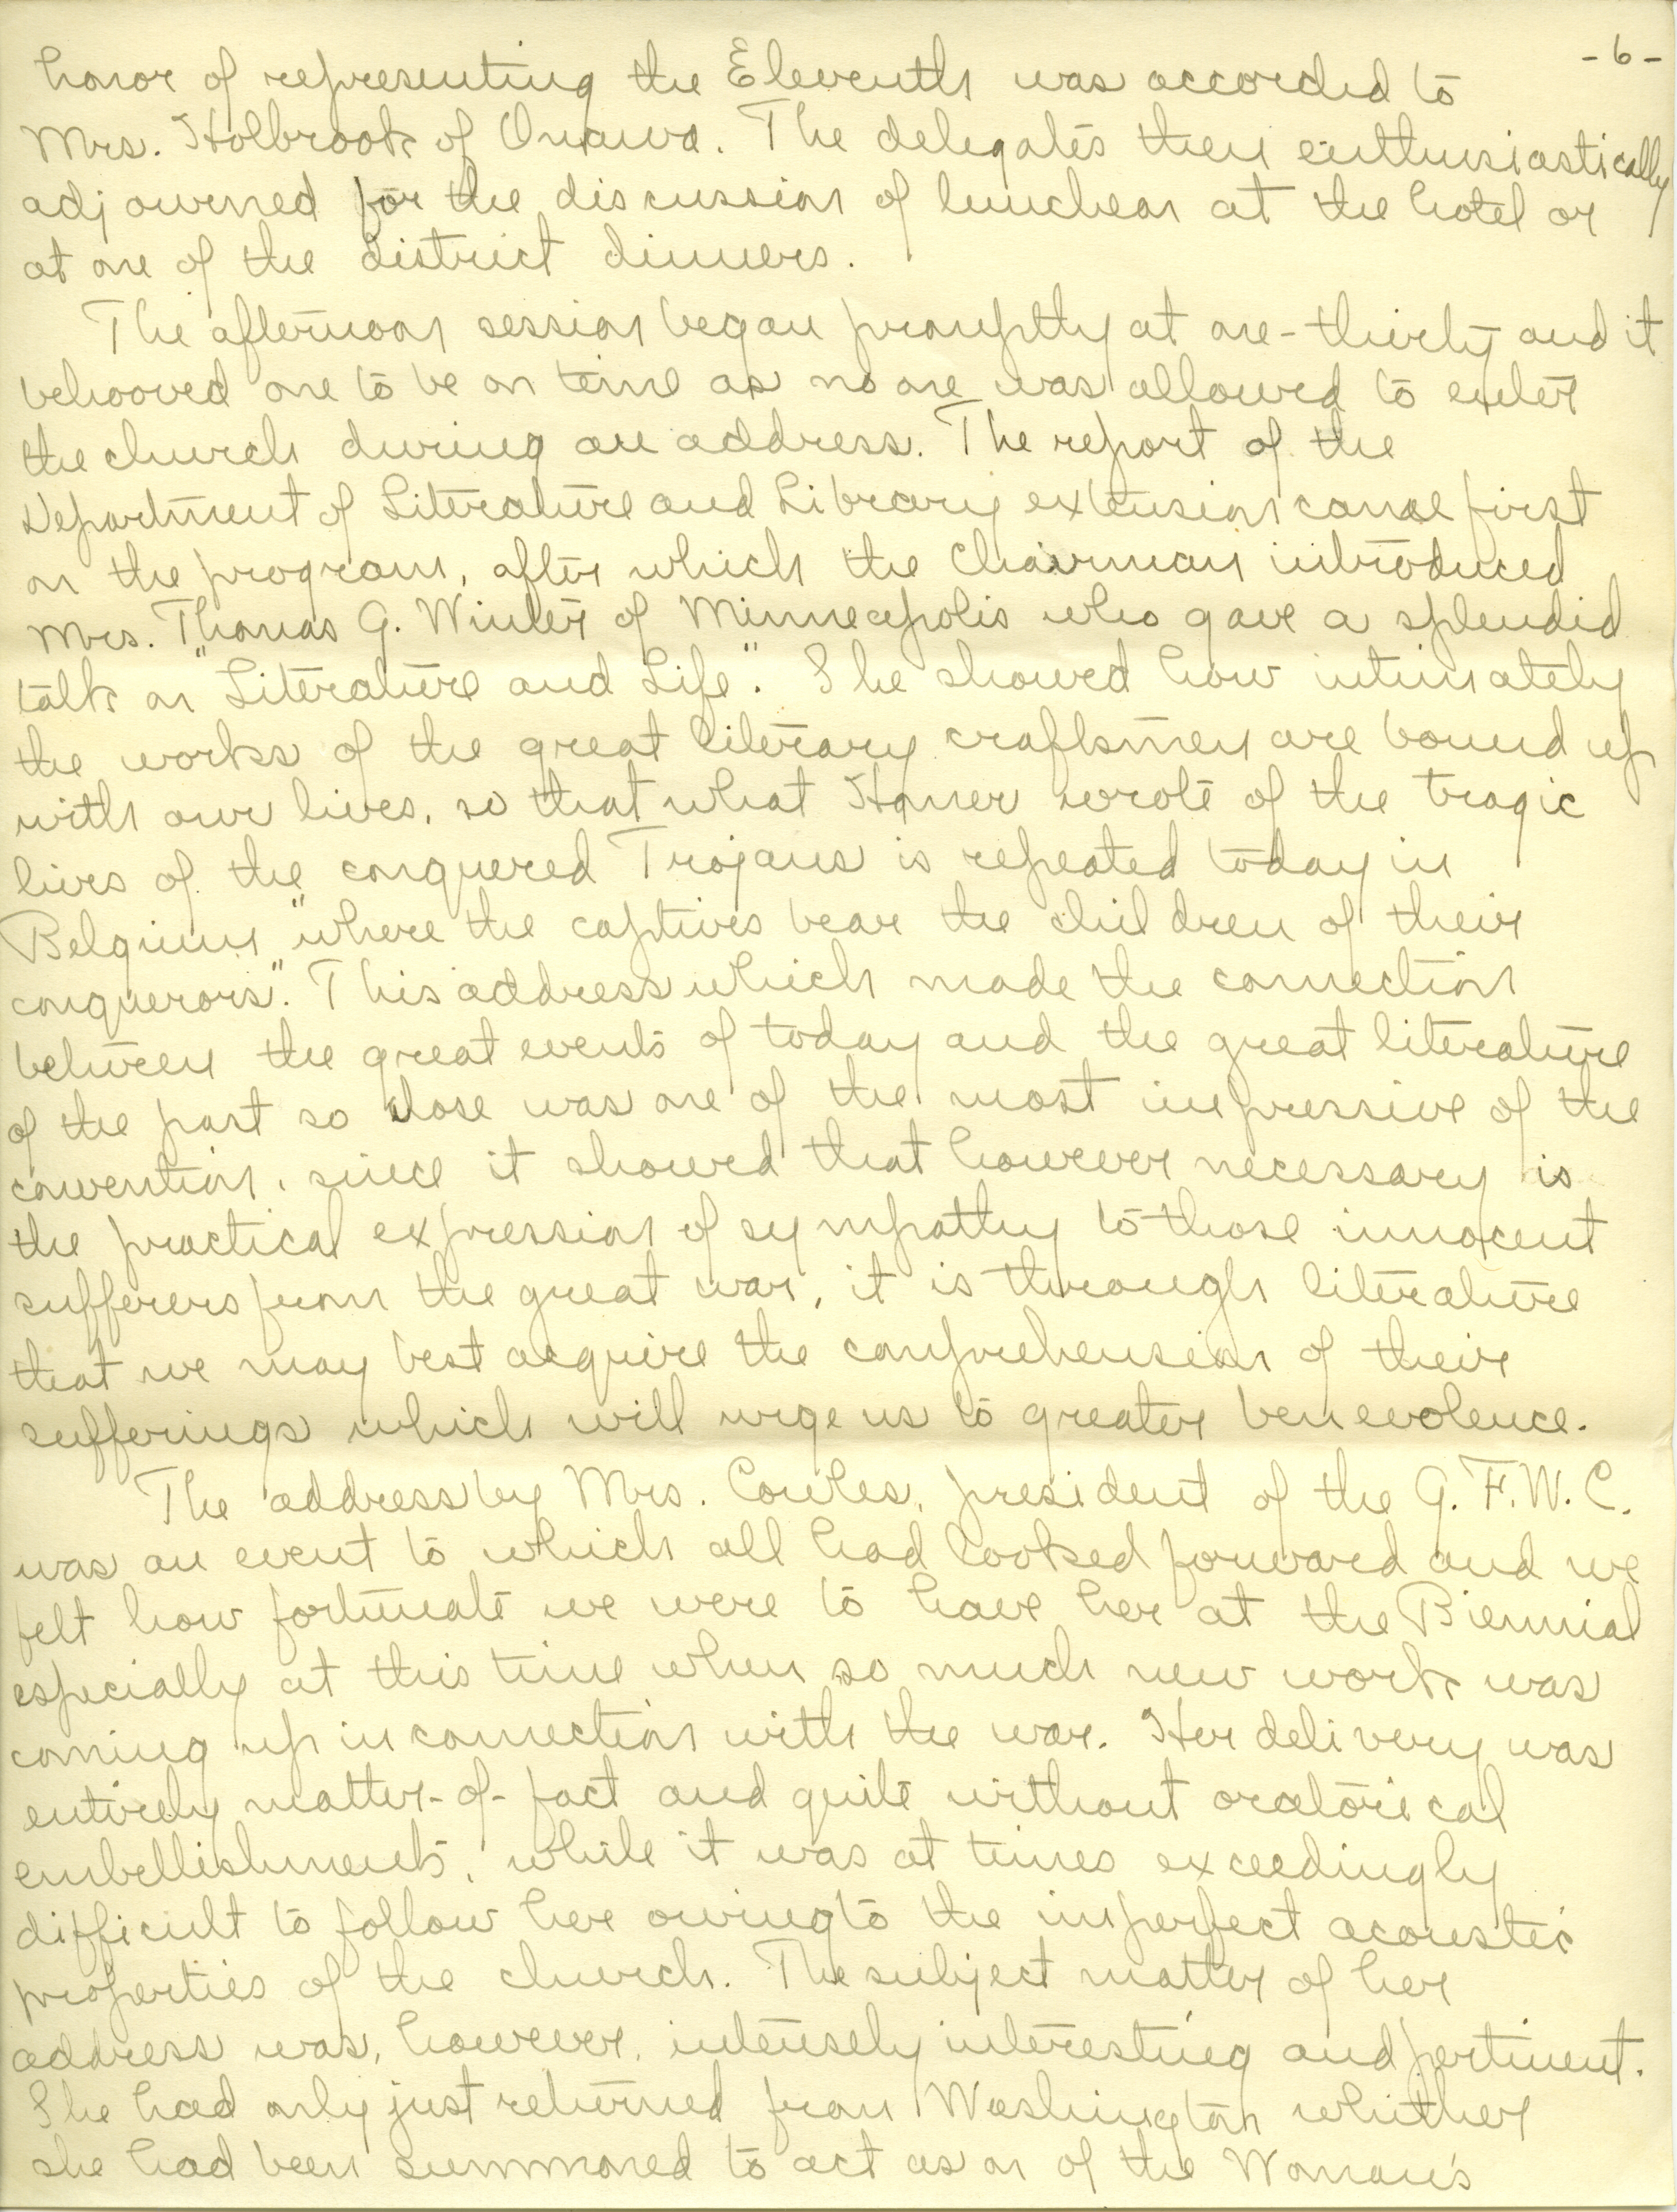 -6-
honor of representing the Eleventh was accorded to
Mrs. Holbrook of Onawa. The delegates then enthusiastically
adjourned for the discussion of luncheon at the hotel or
at one of the district dinners.
The afternoon session began promptly at one-thirty and it
behooved one to be on time as no one was allowed to enter
the church during an address. The report of the
Department of Literature and Library extension came first
on the program, after which the Chairman introduced
Mrs. Thomas G. Winter of Minneapolis who gave a splendid
talk on "Literature and Life". She showed how intimately
the works of the great literary craftsmen are bound up
with our lives, so that what Homer wrote of the tragic
lives of the conquered Trojans is repeated today in
Belgium "where the captives bear the children of their
conquerors". This address which made the connection
between the great events of today and the great literature
of the past so close was one of the most impressive of the
convention, since it showed that however necessary is
the practical expression of sympathy to those innocent
sufferers from the great war, it is through literature
that we may best acquire the comprehension of their
sufferings which will urge us to greater benevolence.
The address by Mrs. Cowles, president of the G.F.W.C.
was an event to which all had looked forward and we
felt how fortunate we were to have her at the Biennial
especially at this time when so much new work was
coming up in connection with the war. Her delivery was
entirely matter-of-fact and quite without oratorical
embellishments, while it was at times exceedingly
difficult to follow her owing to the imperfect acoustic
properties of the church. The subject matter of her
address was, however, intensely interesting and pertinent.
She had only just returned from Washington whither
she had been summoned to act as on of the Woman's